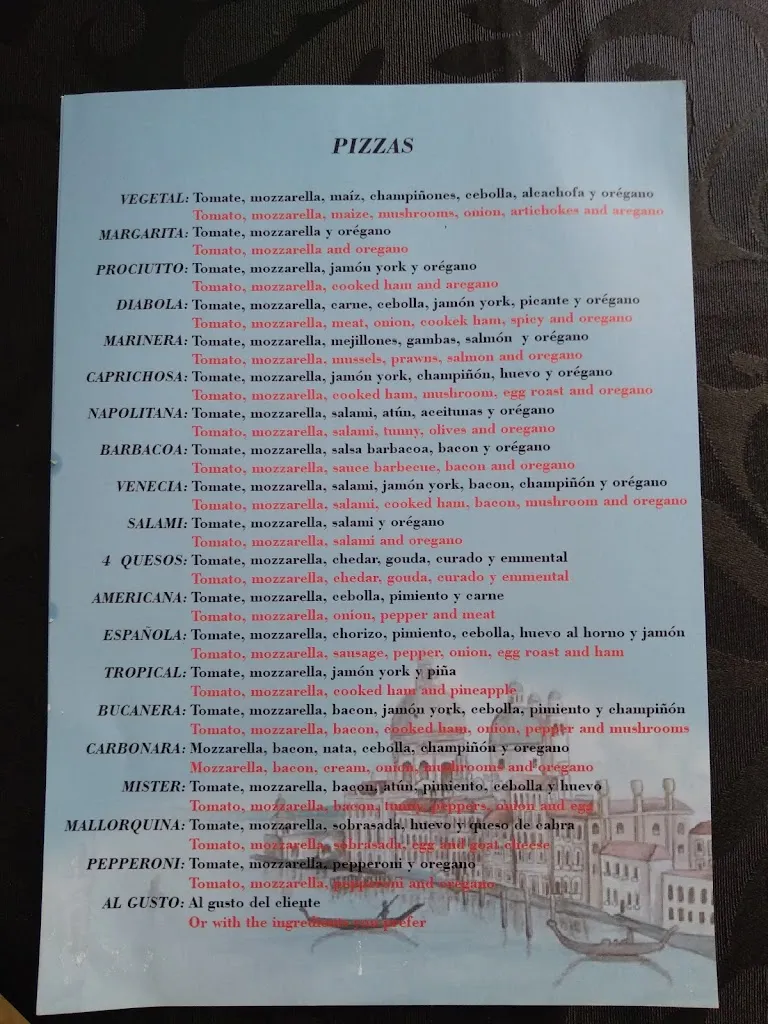 PIZZAS
VEGETAL: Tomate, mozzarella, maíz, champiñones, cebolla, alcachofa y orégano
Tomato, mozzarella, maize, mushrooms, onion, artichokes and aregano
MARGARITA: Tomate, mozzarella y orégano
Tomato, mozzarella and oregano
PROCIUTTO: Tomate, mozzarella, jamón york y orégano
Tomato, mozzarella, cooked ham and aregano
DIABOLA: Tomate, mozzarella, carne, cebolla, jamón york, picante y orégano
Tomato, mozzarella, meat, onion, cookek ham, spicy and oregano
MARINERA: Tomate, mozzarella, mejillones, gambas, salmón y orégano
Tomato, mozzarella, mussels, prawns, salmon and oregano
CAPRICHOSA: Tomate, mozzarella, jamón york, champiñón, huevo y orégano
Tomato, mozzarella, cooked ham, mushroom, egg roast and oregano
NAPOLITANA: Tomate, mozzarella, salami, atún, aceitunas y orégano
Tomato, mozzarella, salami, tunny, olives and oregano
BARBACOA: Tomate, mozzarella, salsa barbacoa, bacon y orégano
Tomato, mozzarella, sauce barbecue, bacon and oregano
VENECIA: Tomate, mozzarella, salami, jamón york, bacon, champiñón y orégano
Tomato, mozzarella, salami, cooked ham, bacon, mushroom and oregano
SALAMI: Tomate, mozzarella, salami y orégano
Tomato, mozzarella, salami and oregano
4 QUESOS: Tomate, mozzarella, chedar, gouda, curado y emmental
Tomato, mozzarella, chedar, gouda, curado y emmental
AMERICANA: Tomate, mozzarella, cebolla, pimiento y carne
Tomato, mozzarella, onion, pepper and meat
ESPAÑOLA: Tomate, mozzarella, chorizo, pimiento, cebolla, huevo al horno y jamón
Tomato, mozzarella, sausage, pepper, onion, egg roast and ham
TROPICAL: Tomate, mozzarella, jamón york y piña
Tomato, mozzarella, cooked ham and pineapple
BUCANERA: Tomate, mozzarella, bacon, jamón york, cebolla, pimiento y champiñón
Tomato, mozzarella, bacon, cooked ham, onion, pepper and mushrooms
CARBONARA: Mozzarella, bacon, nata, cebolla, champiñón y oregano
Mozzarella, bacon, cream, onion, mushrooms and oregano
MISTER: Tomate, mozzarella, bacon, atún, pimiento, cebolla y huevo
Tomato, mozzarella, bacon, tunny, peppers, onion and egg
MALLORQUINA: Tomate, mozzarella, sobrasada, huevo y queso de cabra
Tomato, mozzarella, sobrasada, egg and goat cheese
PEPPERONI: Tomate, mozzarella, pepperoni y oregano
Tomato, mozzarella, pepperoni and oregano
AL GUSTO: Al gusto del cliente
Or with the ingredients you prefer